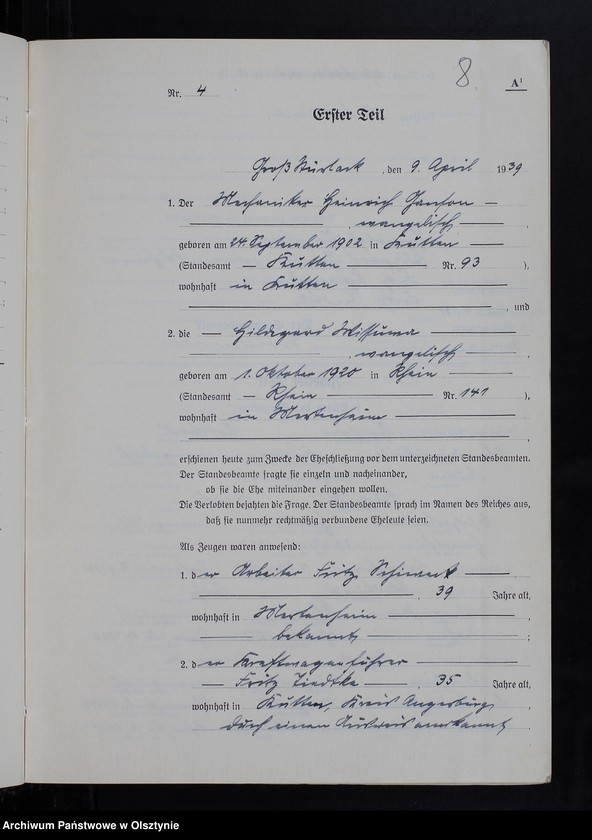 8
A¹
Nr. 4
Erster Teil
Groß Stürlack, den 9. April 1939
1. Der Mechaniker Heinrich
evangelisch,
geboren am 24 September 1902 in Kutten
(Standesamt Kutten Nr. 93),
wohnhaft in Kutten
, und
2. die Hildegard Wissuwa
evangelisch,
geboren am 1. Oktober 1920 in Rhein
(Standesamt Rhein Nr. 141),
wohnhaft in Mertenheim
,
erschienen heute zum Zwecke der Eheschließung vor dem unterzeichneten Standesbeamten.
Der Standesbeamte fragte sie einzeln und nacheinander,
ob sie die Ehe miteinander eingehen wollen.
Die Verlobten bejahten die Frage. Der Standesbeamte sprach im Namen des Reiches aus,
daß sie nunmehr rechtmäßig verbundene Eheleute seien.
Als Zeugen waren anwesend:
1. der Arbeiter Fritz
, 39 Jahre alt,
wohnhaft in Mertenheim,
bekannt;
2. der Kraftwagenführer
Fritz Tiedtke, 35 Jahre alt,
wohnhaft in Kutten, Kreis Angerburg,
durch einen Ausweis anerkannt.
Archiwum Państwowe w Olsztynie